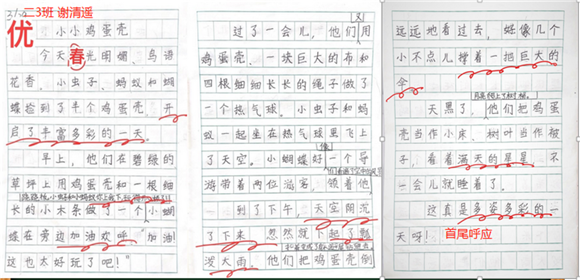 二3班 谢清遥
优
小小鸡蛋壳
今天春光明媚、鸟语
花香，小虫子、蚂蚁和蝴
蝶捡到了半个鸡蛋壳，开
启了丰富多彩的一天。
早上，他们在碧绿的
草坪上用鸡蛋壳和一根细
长的小木条做了一个小
蝶在旁边加油欢呼“加油！
这也太好玩了吧！”
过了一会儿，他们又用
鸡蛋壳、一块巨大的布和
四根细细长长的绳子做了
一个热气球。小虫子和蚂
蚁一起座在热气球里飞上
了天空。小蝴蝶好像一个导
游带着两位游客，领着他
到了下午，天空阴沉
了下来，忽然就下起了
泼大雨，他们把鸡蛋壳倒
远远地看过去，蛙像几个
小不点儿撑着一把巨大的
伞。
天黑了，他们把鸡蛋
壳当作小床、树叶当作被
子，看着满天的星星，不
一会儿就睡着了。
这真是多姿多彩的一
天呀！
首尾呼应